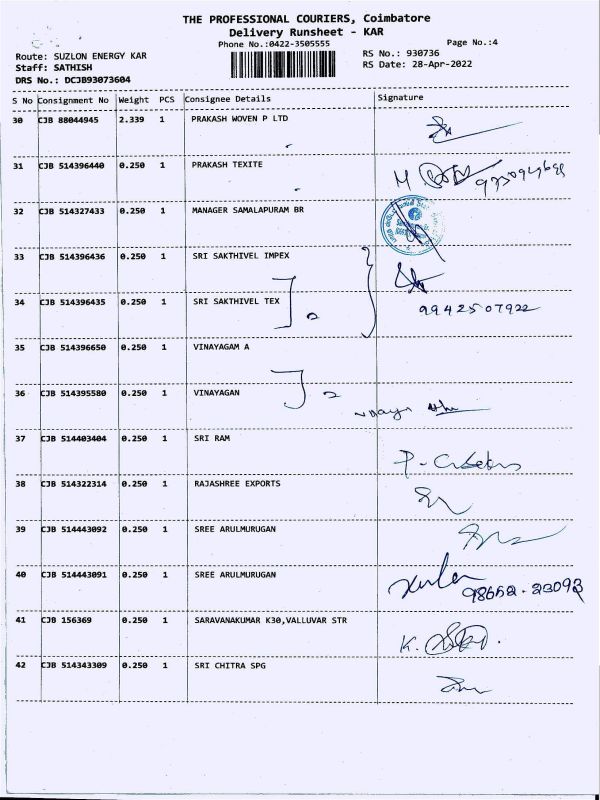 THE PROFESSIONAL COURIERS, Coimbatore
Delivery Runsheet - KAR
Phone No.:0422-3505555
Page No.:4
Route: SUZLON ENERGY KAR
RS No.: 930736
Staff: SATHISH
RS Date: 28-Apr-2022
DRS No.: DCJB93073604
S No Consignment No Weight PCS Consignee Details Signature
30 CJB 88044945 2.339 1 PRAKASH WOVEN P LTD
31 CJB 514396440 0.250 1 PRAKASH TEXITE
32 CJB 514327433 0.250 1 MANAGER SAMALAPURAM BR
33 CJB 514396436 0.250 1 SRI SAKTHIVEL IMPEX
34 CJB 514396435 0.250 1 SRI SAKTHIVEL TEX 9942507922
35 CJB 514396650 0.250 1 VINAYAGAM A
36 CJB 514395580 0.250 1 VINAYAGAN
37 CJB 514403404 0.250 1 SRI RAM
38 CJB 514322314 0.250 1 RAJASHREE EXPORTS
39 CJB 514443092 0.250 1 SREE ARULMURUGAN
40 CJB 514443091 0.250 1 SREE ARULMURUGAN
41 CJB 156369 0.250 1 SARAVANAKUMAR K30,VALLUVAR STR
42 CJB 514343309 0.250 1 SRI CHITRA SPG